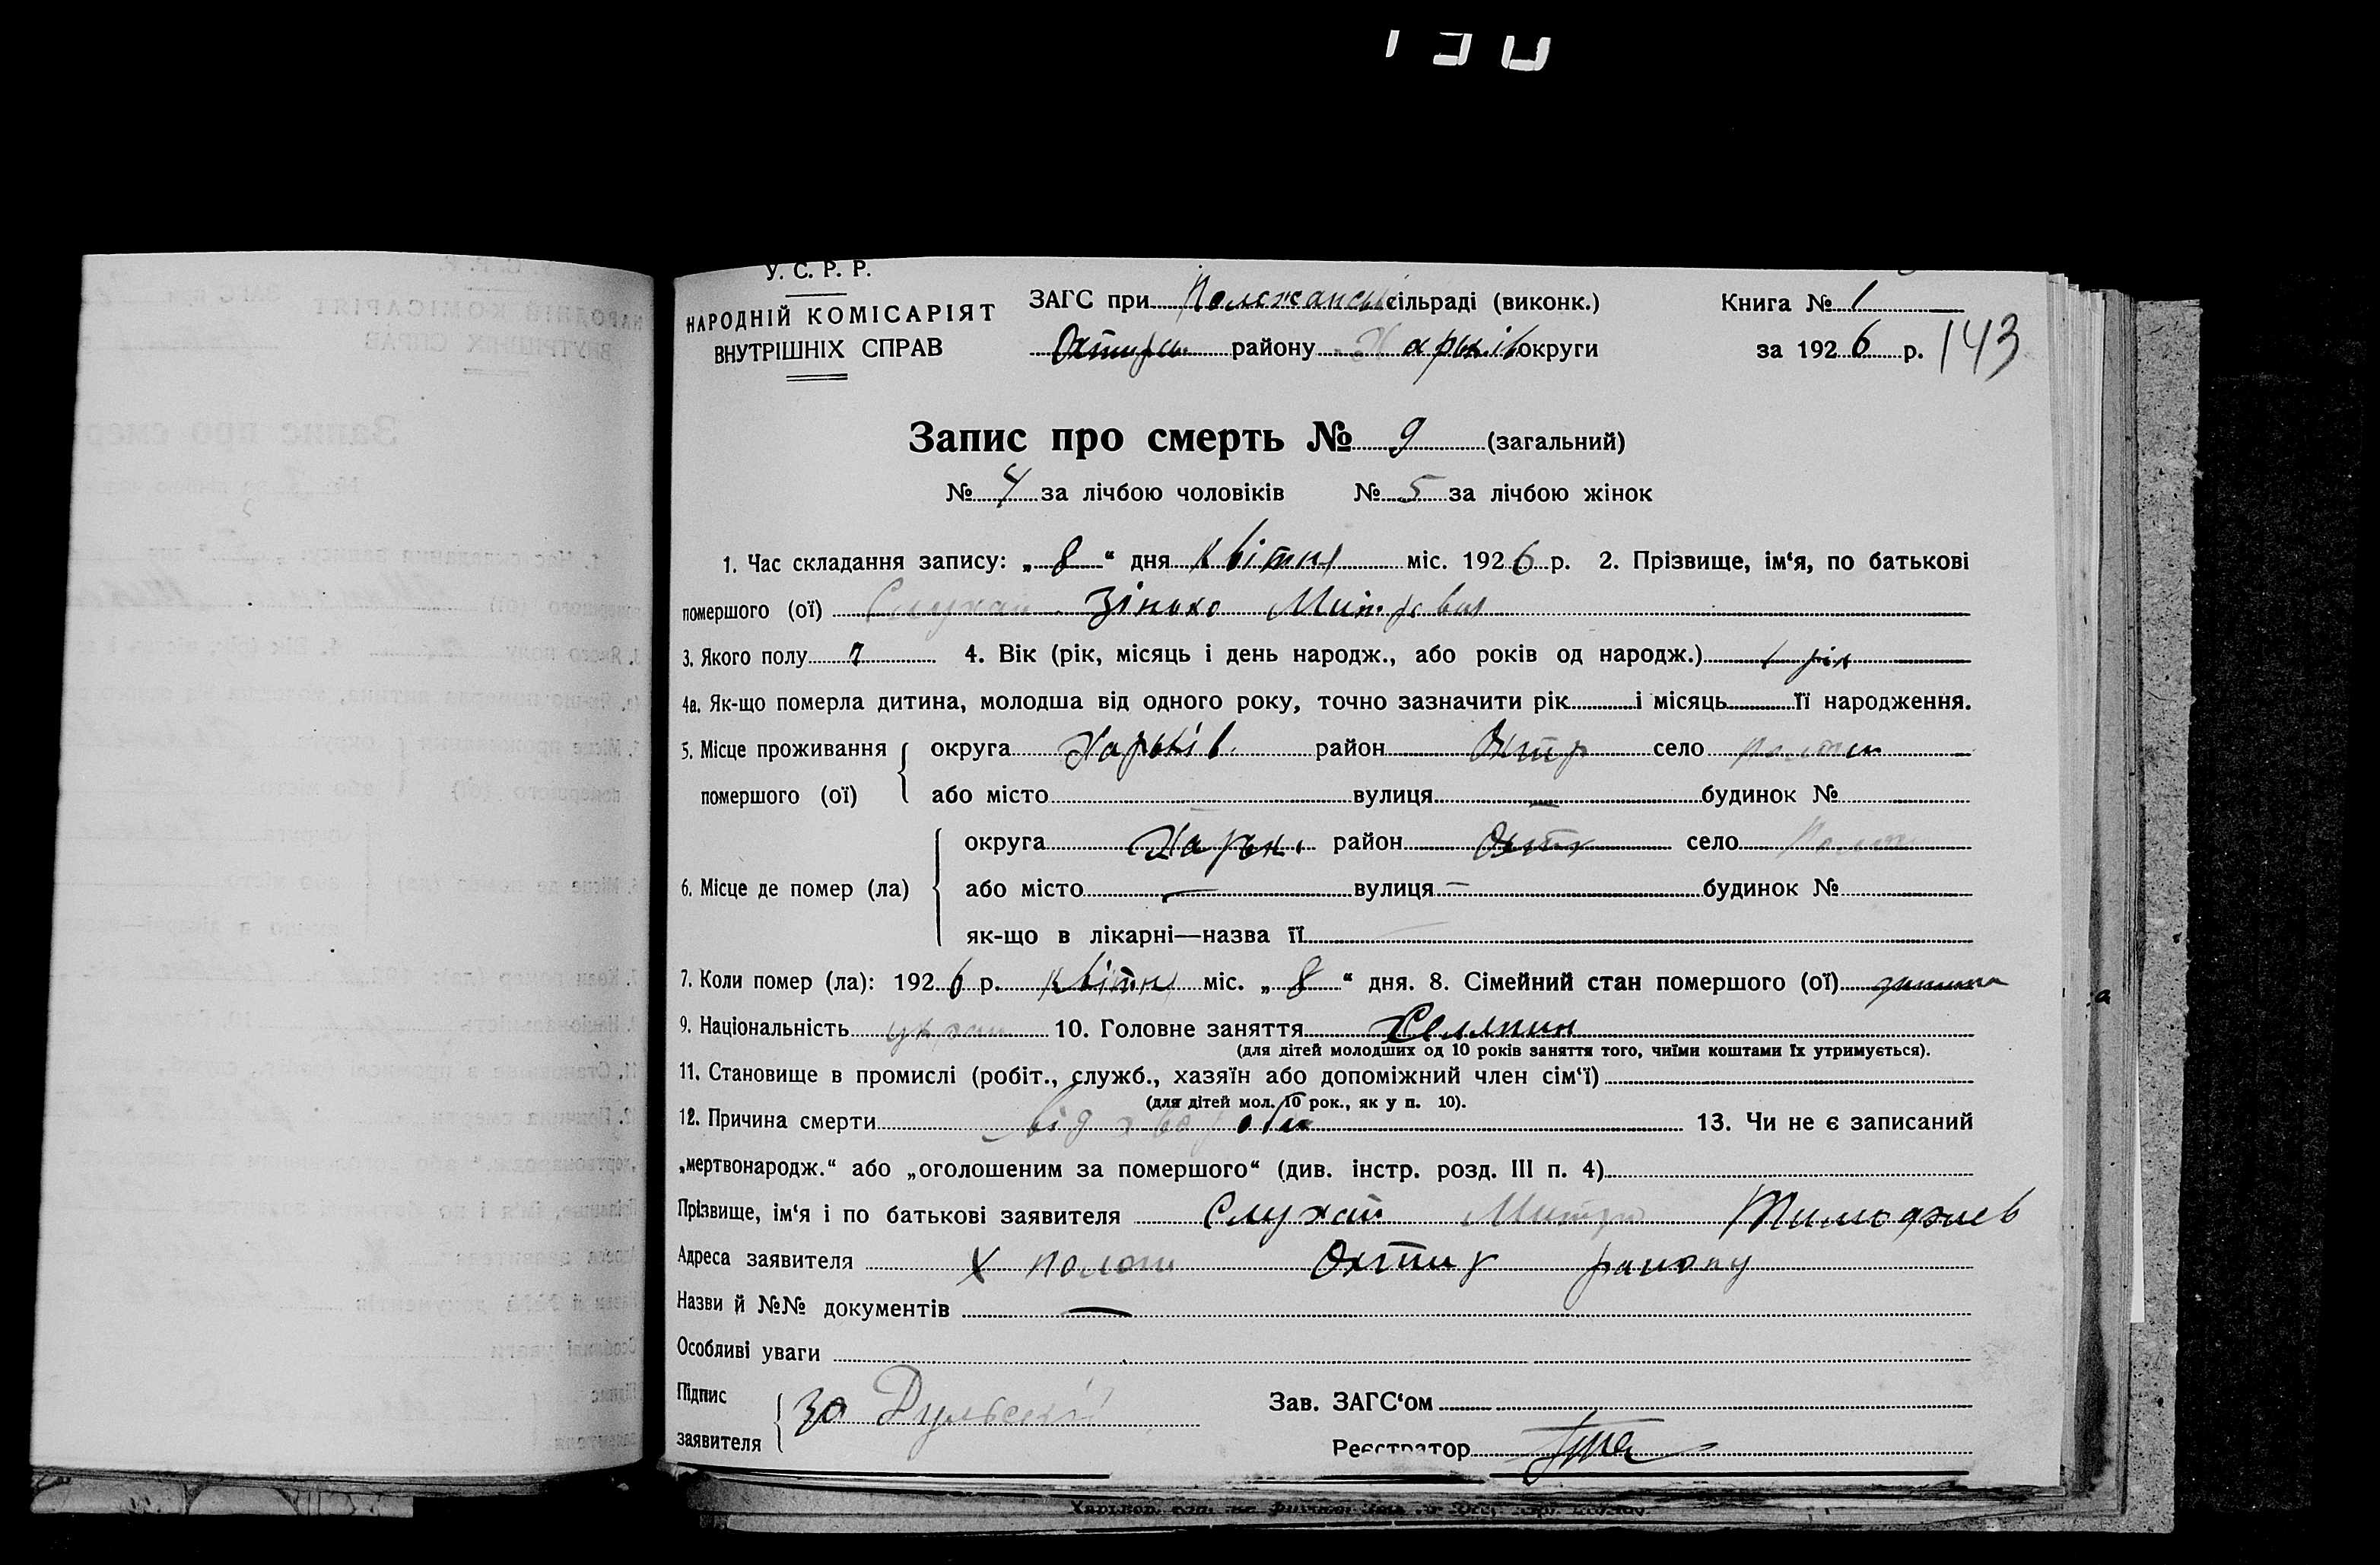 У. С. Р. Р.
НАРОДНІЙ КОМІСАРІЯТ
ВНУТРІШНІХ СПРАВ
ЗАГС при сільраді (виконк.)
району Харків округи
Книга № 1
за 1926 р. 143
Запис про смерть № 9 (загальний)
№ 4 за лічбою чоловіків № 5 за лічбою жінок
1. Час складання запису: „8“ дня квітня міс. 1926 р. 2. Прізвище, ім‘я, по батькові
помершого (ої) Слухай
3. Якого полу 4. Вік (рік, місяць і день народж., або років од народж.) 1 рік
4а. Як-що померла дитина, молодша від одного року, точно зазначити рік і місяць її народження.
5. Місце проживання помершого (ої) округа Харьків район Охтир село
або місто — вулиця — будинок №
6. Місце де помер (ла) округа Харьк район Охтир село
або місто — вулиця — будинок №
як-що в лікарні—назва її
7. Коли помер (ла): 1926 р. квітня міс. „8“ дня. 8. Сімейний стан помершого (ої) дитина
9. Національність україн 10. Головне заняття Селянин
(для дітей молодших од 10 років заняття того, чиїми коштами їх утримується).
11. Становище в промислі (робіт., служб., хазяїн або допоміжний член сім‘ї)
(для дітей мол. 10 рок., як у п. 10).
12. Причина смерти від хвороби 13. Чи не є записаний
„мертвонародж.“ або „оголошеним за помершого“ (див. інстр. розд. III п. 4)
Прізвище, ім‘я і по батькові заявителя Слухай Митро
Адреса заявителя Х Охтир району
Назви й №№ документів —
Особливі уваги
Підпис заявителя за
Зав. ЗАГС‘ом
Реєстратор